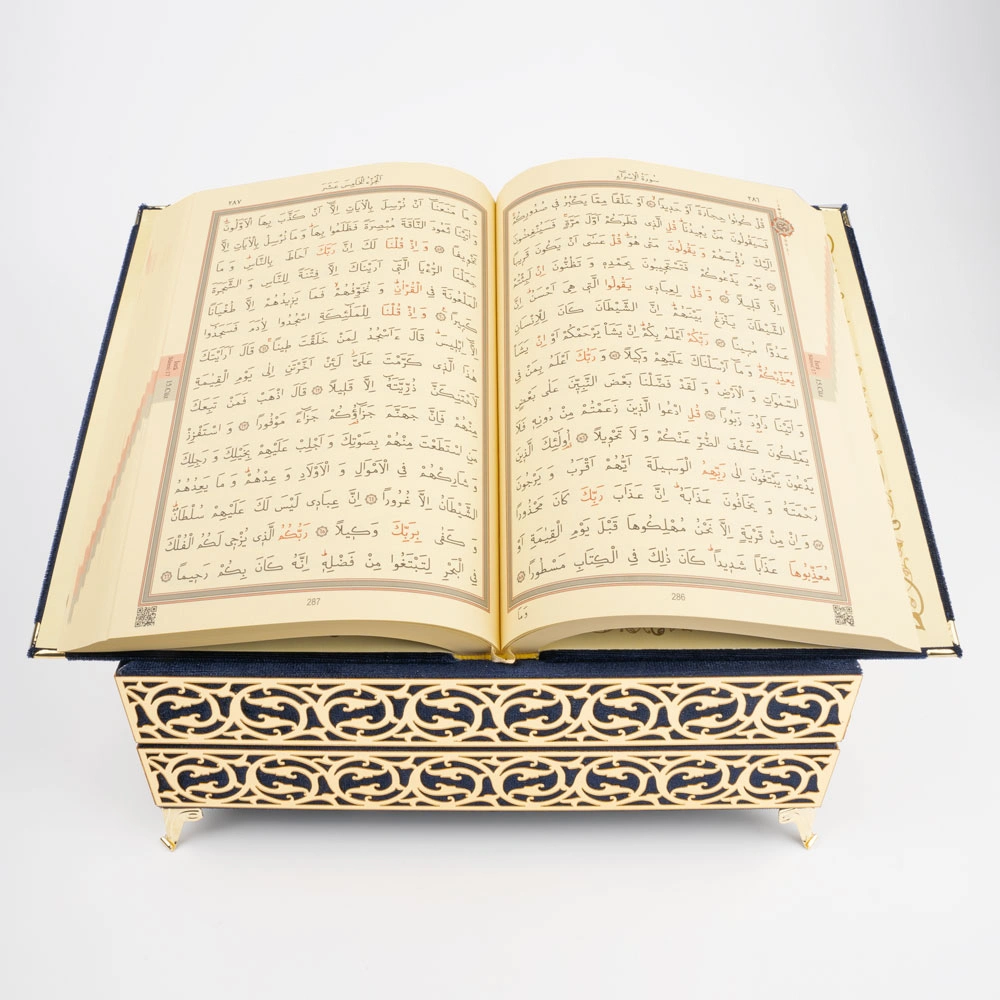 سُورَةُ الْاِسْرَاءِ
٢٨٦
قُلْ كُونُوا حِجَارَةً اَوْ حَدِيدًا ۝ اَوْ خَلْقًا مِمَّا يَكْبُرُ فِي صُدُورِكُمْ
فَسَيَقُولُونَ مَنْ يُعِيدُنَا قُلِ الَّذِي فَطَرَكُمْ اَوَّلَ مَرَّةٍ فَسَيُنْغِضُونَ
اِلَيْكَ رُؤُسَهُمْ وَ يَقُولُونَ مَتَى هُوَ قُلْ عَسَى اَنْ يَكُونَ قَرِيبًا
۝ يَوْمَ يَدْعُوكُمْ فَتَسْتَجِيبُونَ بِحَمْدِهِ وَ تَظُنُّونَ اِنْ لَبِثْتُمْ
اِلَّا قَلِيلًا ۝ وَ قُلْ لِعِبَادِي يَقُولُوا الَّتِي هِيَ اَحْسَنُ اِنَّ
الشَّيْطَانَ يَنْزَغُ بَيْنَهُمْ اِنَّ الشَّيْطَانَ كَانَ لِلْاِنْسَانِ
عَدُوًّا مُبِينًا ۝ رَبُّكُمْ اَعْلَمُ بِكُمْ اِنْ يَشَأْ يَرْحَمْكُمْ اَوْ اِنْ يَشَأْ
يُعَذِّبْكُمْ وَ مَا اَرْسَلْنَاكَ عَلَيْهِمْ وَكِيلًا ۝ وَ رَبُّكَ اَعْلَمُ بِمَنْ فِي
السَّمٰوَاتِ وَ الْاَرْضِ وَ لَقَدْ فَضَّلْنَا بَعْضَ النَّبِيِّنَ عَلَى بَعْضٍ
وَ اٰتَيْنَا دَاوُدَ زَبُورًا ۝ قُلِ ادْعُوا الَّذِينَ زَعَمْتُمْ مِنْ دُونِهِ فَلَا
يَمْلِكُونَ كَشْفَ الضُّرِّ عَنْكُمْ وَ لَا تَحْوِيلًا ۝ اُولٰئِكَ الَّذِينَ
يَدْعُونَ يَبْتَغُونَ اِلَى رَبِّهِمُ الْوَسِيلَةَ اَيُّهُمْ اَقْرَبُ وَ يَرْجُونَ
رَحْمَتَهُ وَ يَخَافُونَ عَذَابَهُ اِنَّ عَذَابَ رَبِّكَ كَانَ مَحْذُورًا
۝ وَ اِنْ مِنْ قَرْيَةٍ اِلَّا نَحْنُ مُهْلِكُوهَا قَبْلَ يَوْمِ الْقِيٰمَةِ اَوْ
مُعَذِّبُوهَا عَذَابًا شَدِيدًا كَانَ ذٰلِكَ فِي الْكِتَابِ مَسْطُورًا ۝
286
وَمَا
اَلْجُزْءُ الْخَامِسَ عَشَرَ
٢٨٧
وَ مَا مَنَعَنَا اَنْ نُرْسِلَ بِالْاٰيَاتِ اِلَّا اَنْ كَذَّبَ بِهَا الْاَوَّلُونَ
وَ اٰتَيْنَا ثَمُودَ النَّاقَةَ مُبْصِرَةً فَظَلَمُوا بِهَا وَ مَا نُرْسِلُ بِالْاٰيَاتِ اِلَّا
تَخْوِيفًا ۝ وَ اِذْ قُلْنَا لَكَ اِنَّ رَبَّكَ اَحَاطَ بِالنَّاسِ وَ مَا
جَعَلْنَا الرُّءْيَا الَّتِي اَرَيْنَاكَ اِلَّا فِتْنَةً لِلنَّاسِ وَ الشَّجَرَةَ
الْمَلْعُونَةَ فِي الْقُرْاٰنِ وَ نُخَوِّفُهُمْ فَمَا يَزِيدُهُمْ اِلَّا طُغْيَانًا
كَبِيرًا ۝ وَ اِذْ قُلْنَا لِلْمَلٰئِكَةِ اسْجُدُوا لِاٰدَمَ فَسَجَدُوا
اِلَّا اِبْلِيسَ قَالَ ءَاَسْجُدُ لِمَنْ خَلَقْتَ طِينًا ۝ قَالَ اَرَاَيْتَكَ
هٰذَا الَّذِي كَرَّمْتَ عَلَيَّ لَئِنْ اَخَّرْتَنِ اِلَى يَوْمِ الْقِيٰمَةِ
لَاَحْتَنِكَنَّ ذُرِّيَّتَهُ اِلَّا قَلِيلًا ۝ قَالَ اذْهَبْ فَمَنْ تَبِعَكَ
مِنْهُمْ فَاِنَّ جَهَنَّمَ جَزَاؤُكُمْ جَزَاءً مَوْفُورًا ۝ وَ اسْتَفْزِزْ
مَنِ اسْتَطَعْتَ مِنْهُمْ بِصَوْتِكَ وَ اَجْلِبْ عَلَيْهِمْ بِخَيْلِكَ وَ رَجِلِكَ
وَ شَارِكْهُمْ فِي الْاَمْوَالِ وَ الْاَوْلَادِ وَ عِدْهُمْ وَ مَا يَعِدُهُمُ
الشَّيْطَانُ اِلَّا غُرُورًا ۝ اِنَّ عِبَادِي لَيْسَ لَكَ عَلَيْهِمْ سُلْطَانٌ
وَ كَفَى بِرَبِّكَ وَكِيلًا ۝ رَبُّكُمُ الَّذِي يُزْجِي لَكُمُ الْفُلْكَ
فِي الْبَحْرِ لِتَبْتَغُوا مِنْ فَضْلِهِ اِنَّهُ كَانَ بِكُمْ رَحِيمًا ۝
287